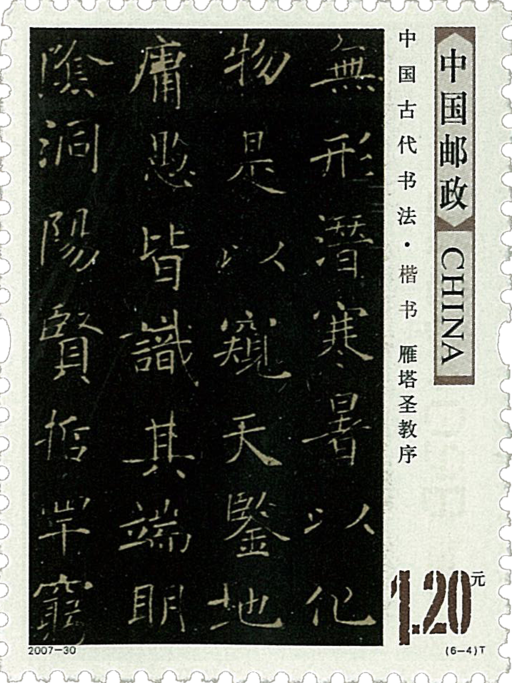 中国邮政
CHINA
中国古代书法·楷书 雁塔圣教序
無形潛寒暑以化
物是以窺天鑒地
庸愚皆識其端明
陰洞陽賢哲罕窮
1.20元
2007-30
(6-4)T